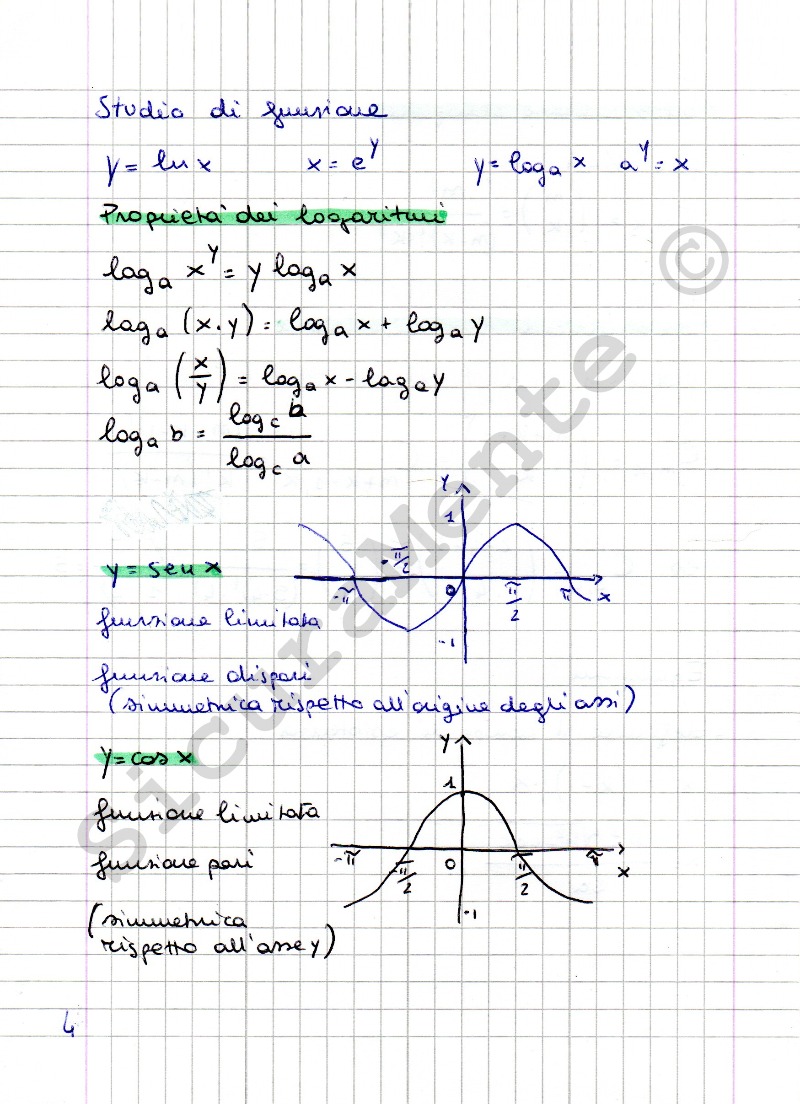 Studio di funzione
y = ln x    x = e^y    y = log_a x    a^y = x
Proprietà dei logaritmi
log_a x^y = y log_a x
log_a (x·y) = log_a x + log_a y
log_a (x/y) = log_a x - log_a y
log_a b = log_c b / log_c a
y = sen x
y
1
-π/2
-π
0
π/2
π
x
-1
funzione limitata
funzione dispari
(simmetrica rispetto all'origine degli assi)
y = cos x
y
1
funzione limitata
-π
-π/2
0
π/2
π
x
-1
funzione pari
(simmetrica
rispetto all'asse y)
4
SicuraMente ©